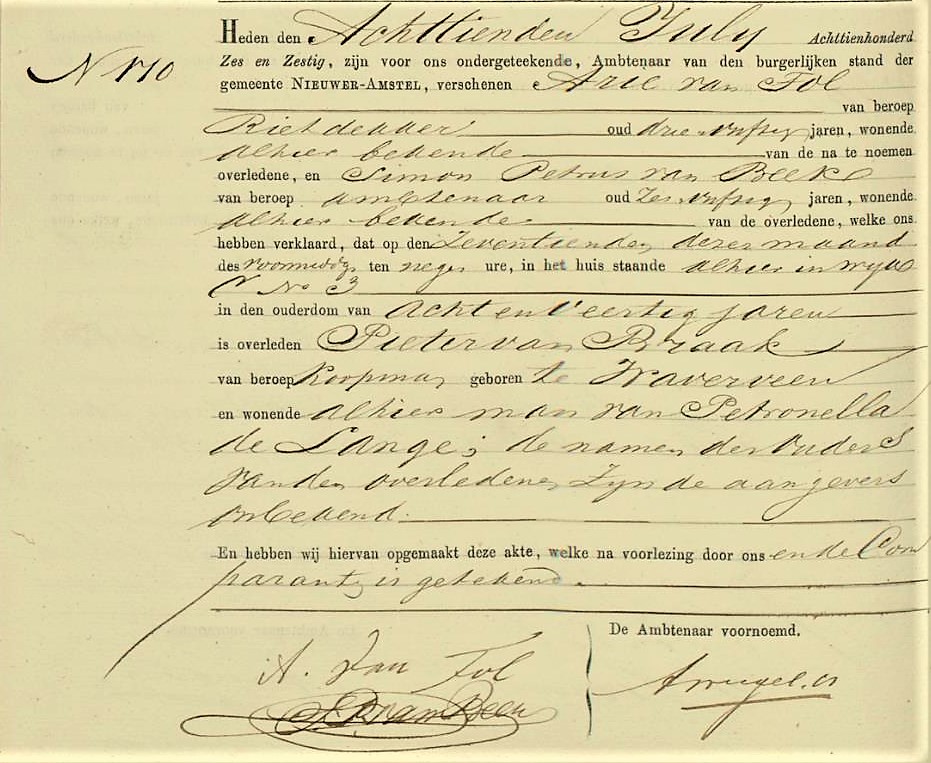 Heden den Achttienden July Achttienhonderd
N 170
Zes en Zestig, zijn voor ons ondergeteekende, Ambtenaar van den burgerlijken stand der
gemeente NIEUWER-AMSTEL, verschenen Arie van Tol
van beroep
Rietdekker oud drie vyftig jaren, wonende
alhier bekende van de na te noemen
overledene, en Simon Petrus van Beek
van beroep ambtenaar oud Zes vyftig jaren, wonende
alhier bekende van de overledene, welke ons
hebben verklaard, dat op den Zeventienden dezer maand
des voormiddags ten negen ure, in het huis staande alhier in wyk
V No 3
in den ouderdom van acht en Veertig jaren
is overleden Pieter van Braak
van beroep Koopman geboren te Waverveen
en wonende alhier man van Petronella
de Lange; de namen der Ouders
van den overledene Zyn de aangevers
onbekend.
En hebben wij hiervan opgemaakt deze akte, welke na voorlezing door ons en de Com
paranten is getekend.
De Ambtenaar voornoemd.
A. van Tol